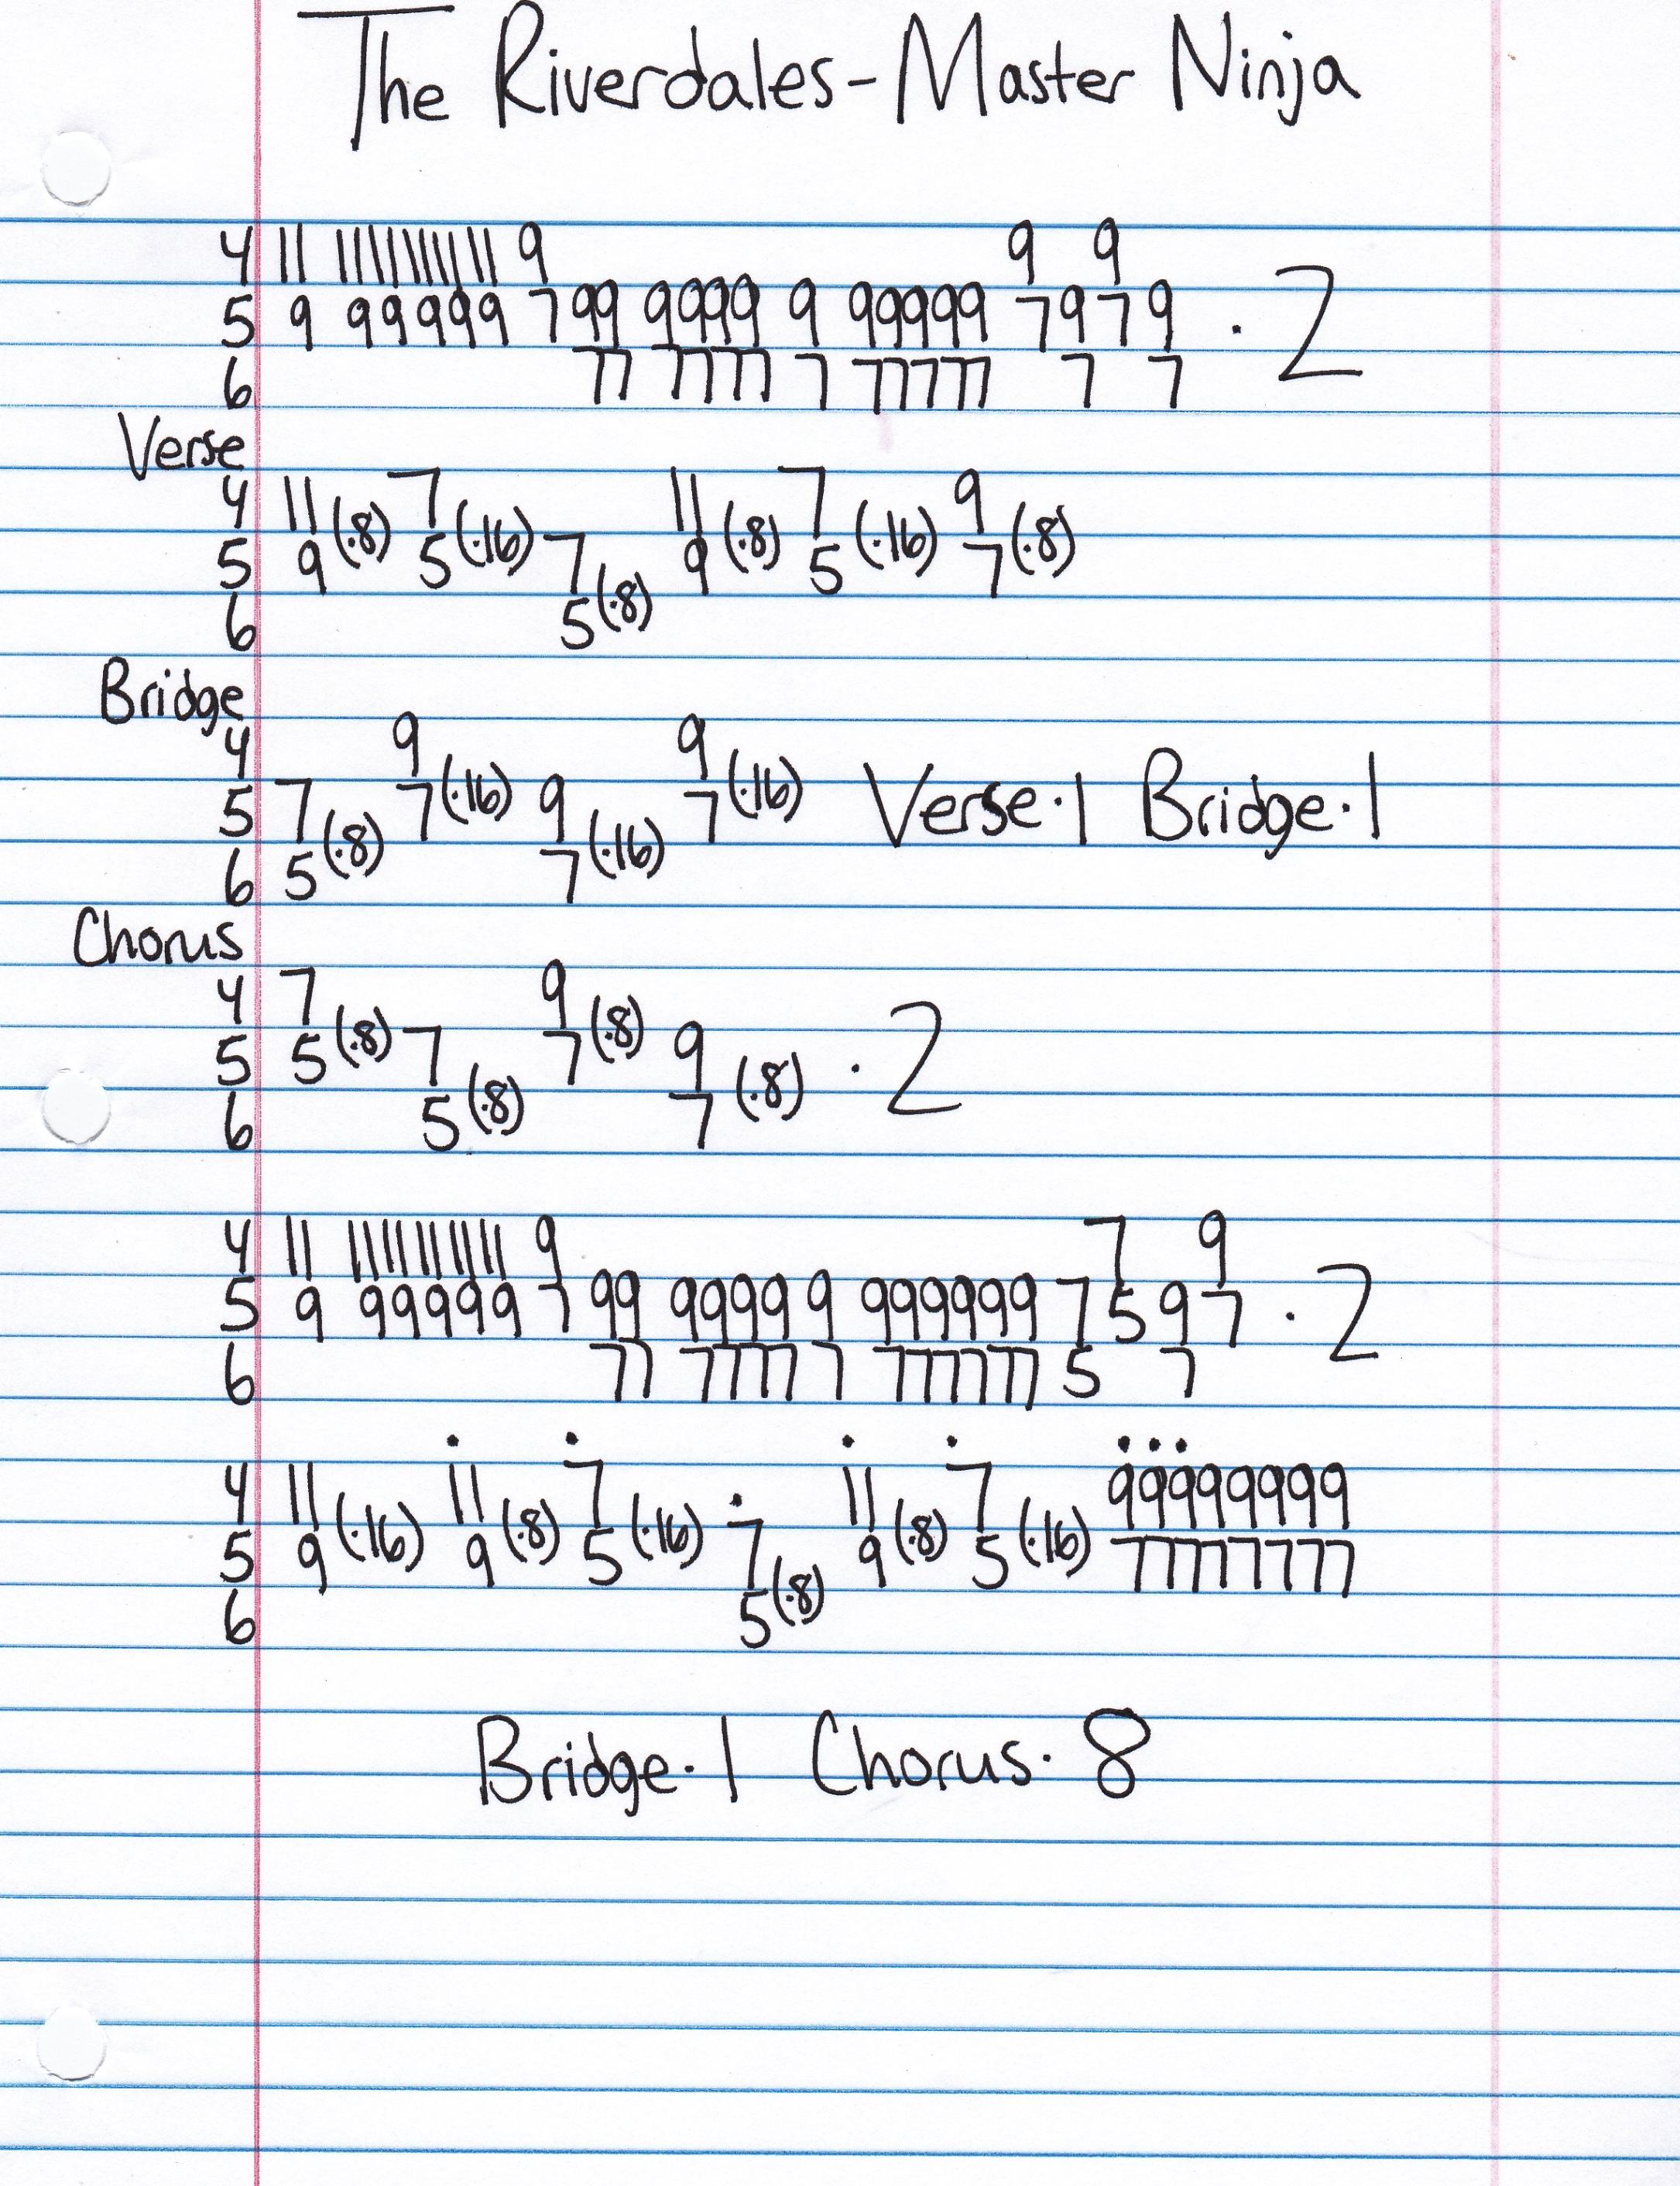 The Riverdales - Master Ninja
4 11 1111111111 9 9 9
5 9 99999 7 99 9999 9 99999 7 9 7 9 · 2
6 77 7777 7 77777 7 7
Verse
4 11 (·8) 7 (·16) 11 (·8) 7 (·16) 9 (·8)
5 9 5 7 9 5 7
6 5 (·8)
Bridge
4 9 9
5 7 7 (·16) 9 7 (·16) Verse·1 Bridge·1
6 5 (·8) 7 (·16)
Chorus
4 7 9
5 5 (·8) 7 7 (·8) 9 · 2
6 5 (·8) 7 (·8)
4 11 1111111111 9 7 9
5 9 99999 7 99 9999 9 999999 7 5 9 7 · 2
6 77 7777 7 777777 5 7
· · · · · · · ·
4 11 (·16) 11 (·8) 7 (·16) 11 (·8) 7 (·16) 99999999
5 9 9 5 7 9 5 77777777
6 5 (·8)
Bridge·1 Chorus·8